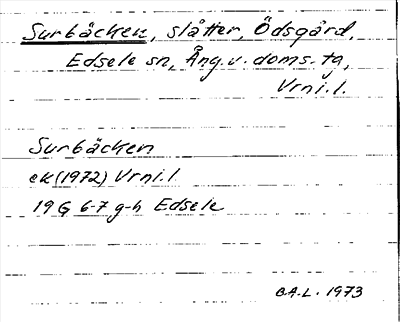 Surbäcken, slåtter, Ödsgård,
Edsele sn, Ång. v. doms. ta,
Vrni.l.
Surbäcken
ek (1972) Vrni.l
19 G 6-7 g-h Edsele
B.A.L. 1973